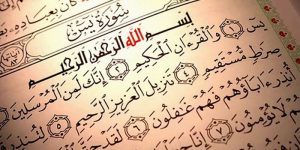 سُورَةُ يسٓ
بِسْمِ اللَّهِ الرَّحْمَٰنِ الرَّحِيمِ
يسٓ ١ وَالْقُرْءَانِ الْحَكِيمِ ٢ إِنَّكَ لَمِنَ الْمُرْسَلِينَ ٣
صِرَٰطٍ مُّسْتَقِيمٍ ٤ تَنزِيلَ الْعَزِيزِ الرَّحِيمِ ٥ لِتُنذِرَ
أُنذِرَ ءَابَآؤُهُمْ فَهُمْ غَٰفِلُونَ ٦ لَقَدْ
لَا يُؤْمِنُونَ ٧